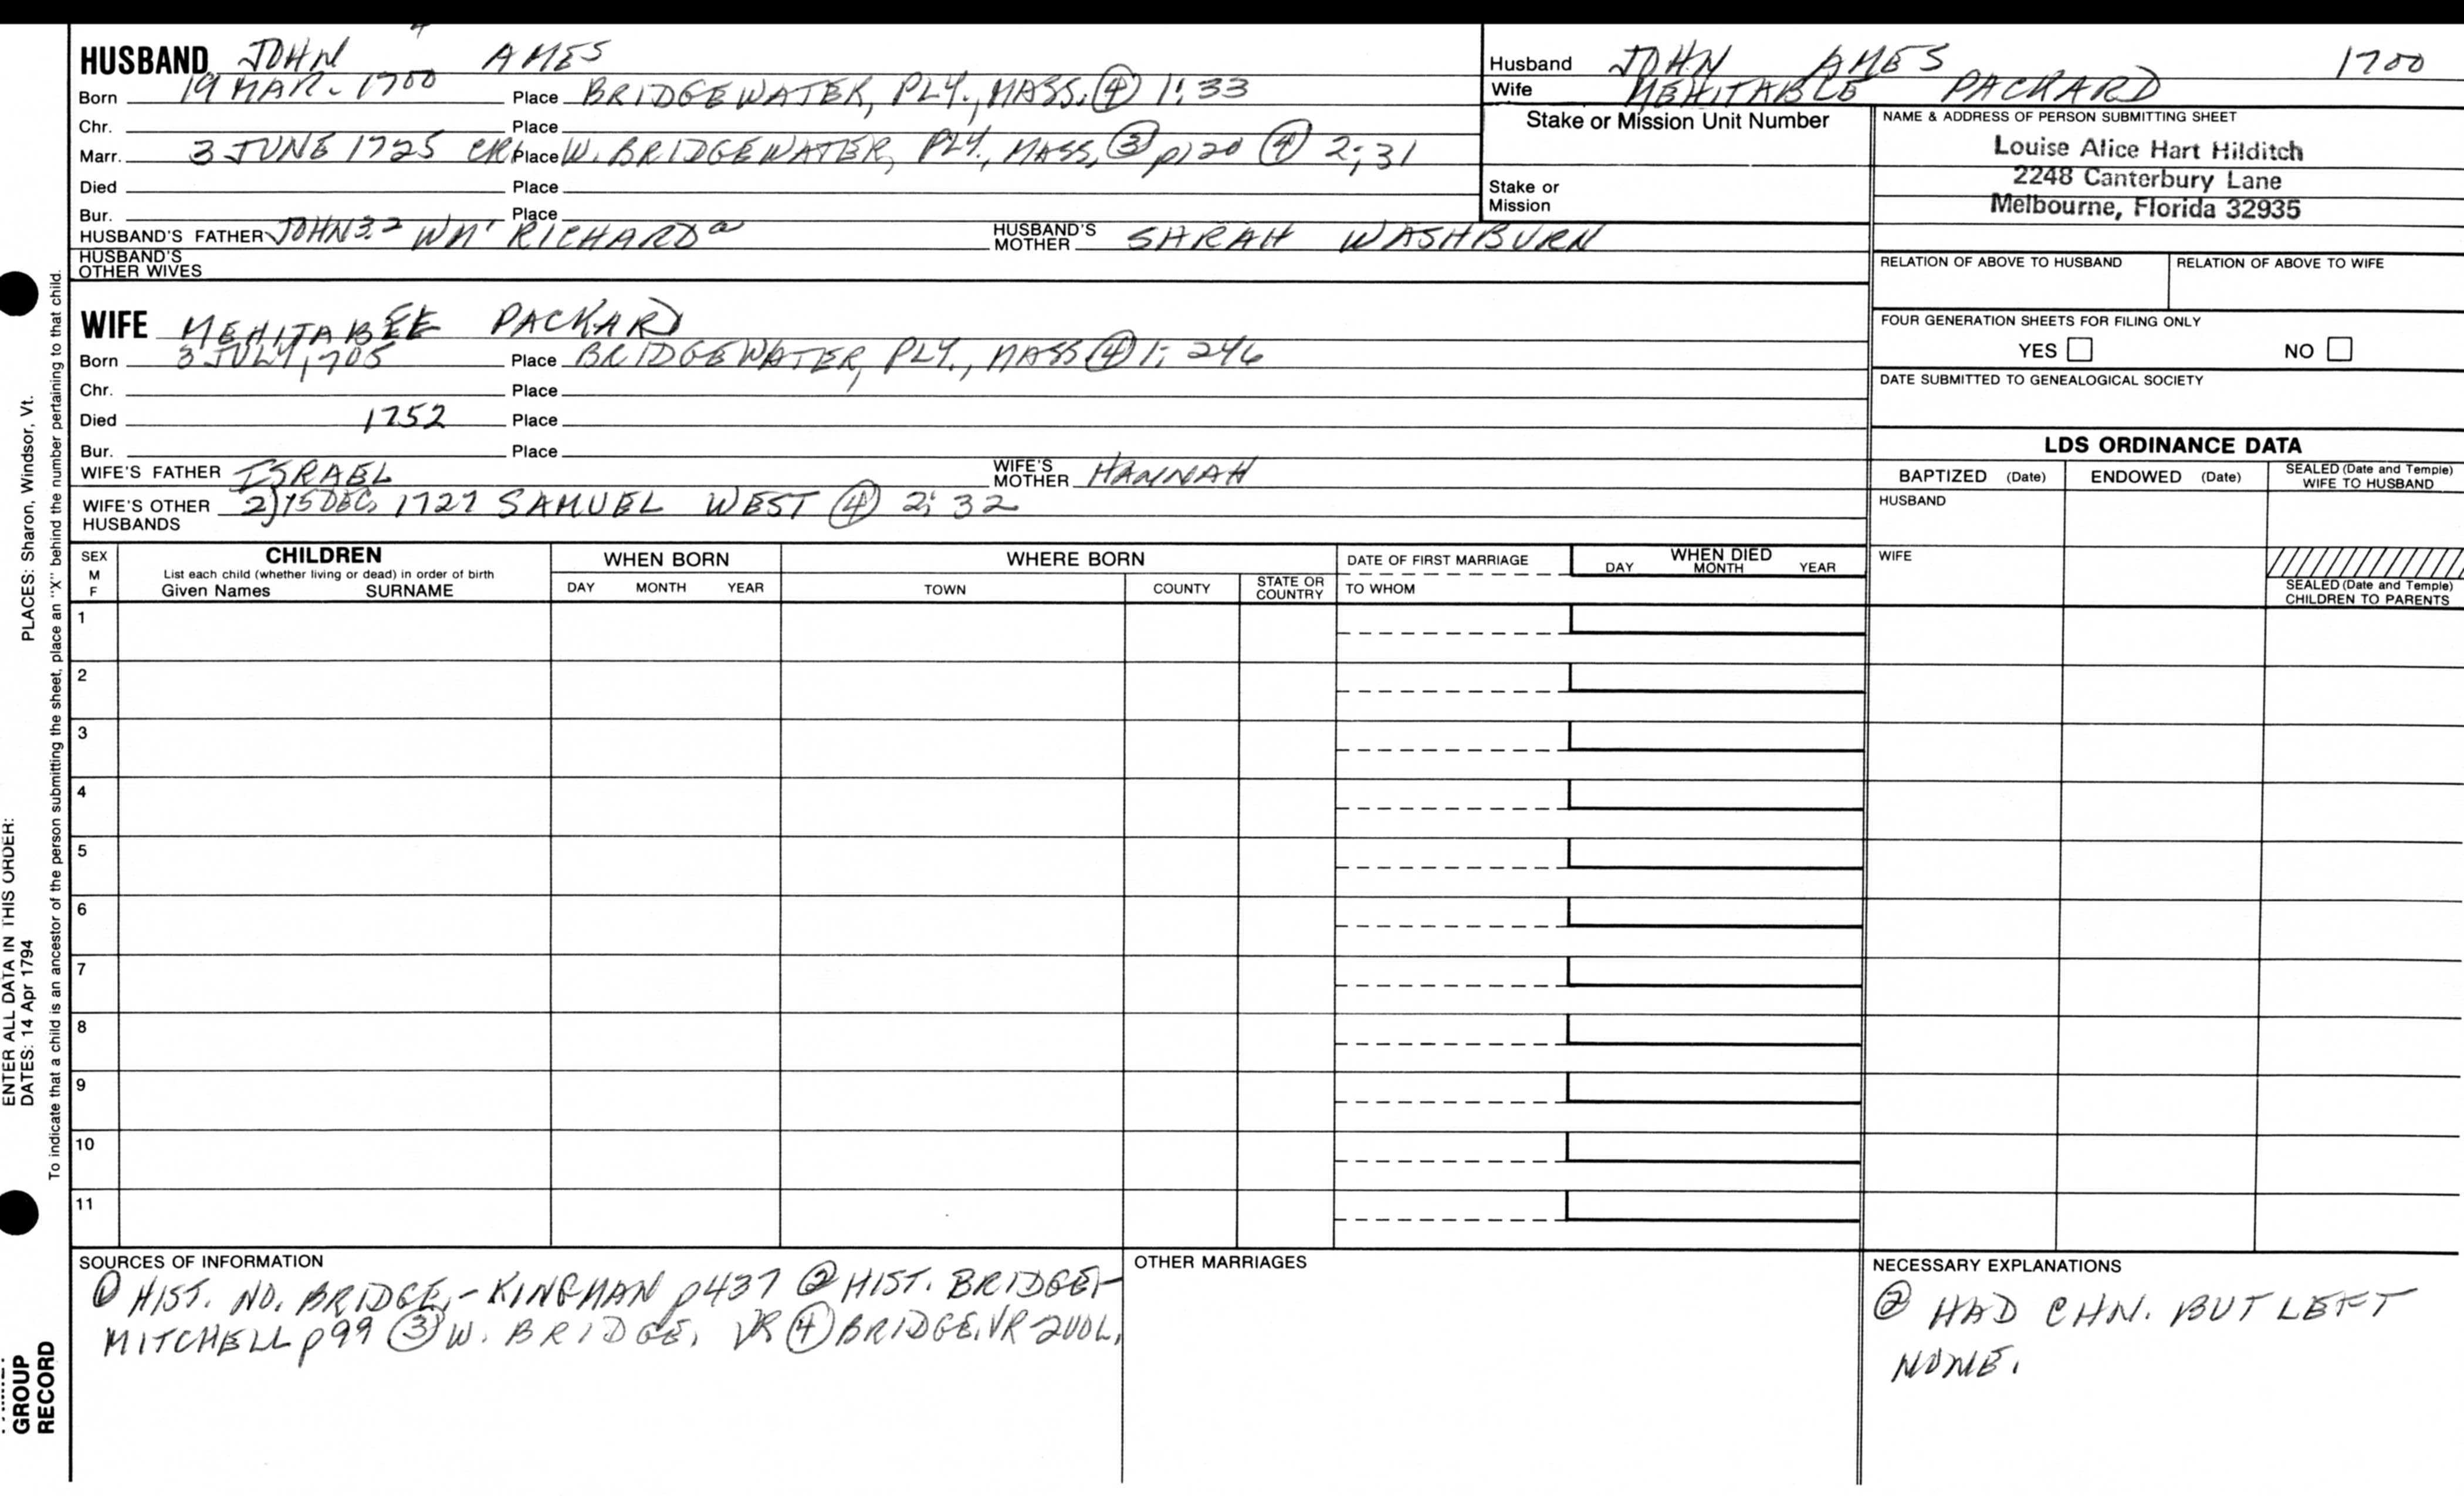 4
HUSBAND JOHN AMES
Born 19 MAR. 1700 Place BRIDGEWATER, PLY., MASS. ④ 1:33
Chr. Place
Marr. 3 JUNE 1725 Place W. BRIDGEWATER, PLY., MASS, ③ p120 ④ 2:31
Died Place
Bur. Place
HUSBAND'S FATHER JOHN3.2 WM' RICHARDa HUSBAND'S MOTHER SARAH WASHBURN
HUSBAND'S OTHER WIVES
Husband JOHN AMES 1700
Wife MEHITABLE PACKARD
Stake or Mission Unit Number
Stake or Mission
NAME & ADDRESS OF PERSON SUBMITTING SHEET
Louise Alice Hart Hilditch
2248 Canterbury Lane
Melbourne, Florida 32935
RELATION OF ABOVE TO HUSBAND RELATION OF ABOVE TO WIFE
FOUR GENERATION SHEETS FOR FILING ONLY
YES NO
DATE SUBMITTED TO GENEALOGICAL SOCIETY
WIFE PACKARD
Born 3 JULY 1705 Place BRIDGEWATER, PLY., MASS ④ 1; 246
Chr. Place
Died 1752 Place
Bur. Place
WIFE'S FATHER ISRAEL WIFE'S MOTHER HANNAH
WIFE'S OTHER HUSBANDS 2) 15 DEC. 1727 SAMUEL WEST ④ 2; 32
LDS ORDINANCE DATA
BAPTIZED (Date) ENDOWED (Date) SEALED (Date and Temple) WIFE TO HUSBAND
HUSBAND
WIFE
SEALED (Date and Temple) CHILDREN TO PARENTS
SEX M F
CHILDREN
List each child (whether living or dead) in order of birth
Given Names SURNAME
WHEN BORN
DAY MONTH YEAR
WHERE BORN
TOWN COUNTY STATE OR COUNTRY
DATE OF FIRST MARRIAGE
TO WHOM
WHEN DIED
DAY MONTH YEAR
1
2
3
4
5
6
7
8
9
10
11
SOURCES OF INFORMATION
① HIST. NO. BRIDGE,- KINGMAN p437 ② HIST. BRIDGE,-
MITCHELL p99 ③ W. BRIDGE, VR ④ BRIDGE. VR 2VOL,
OTHER MARRIAGES
NECESSARY EXPLANATIONS
② HAD CHN. BUT LEFT
NONE.
ENTER ALL DATA IN THIS ORDER:
DATES: 14 Apr 1794 PLACES: Sharon, Windsor, Vt.
To indicate that a child is an ancestor of the person submitting the sheet, place an "X" behind the number pertaining to that child.
GROUP
RECORD